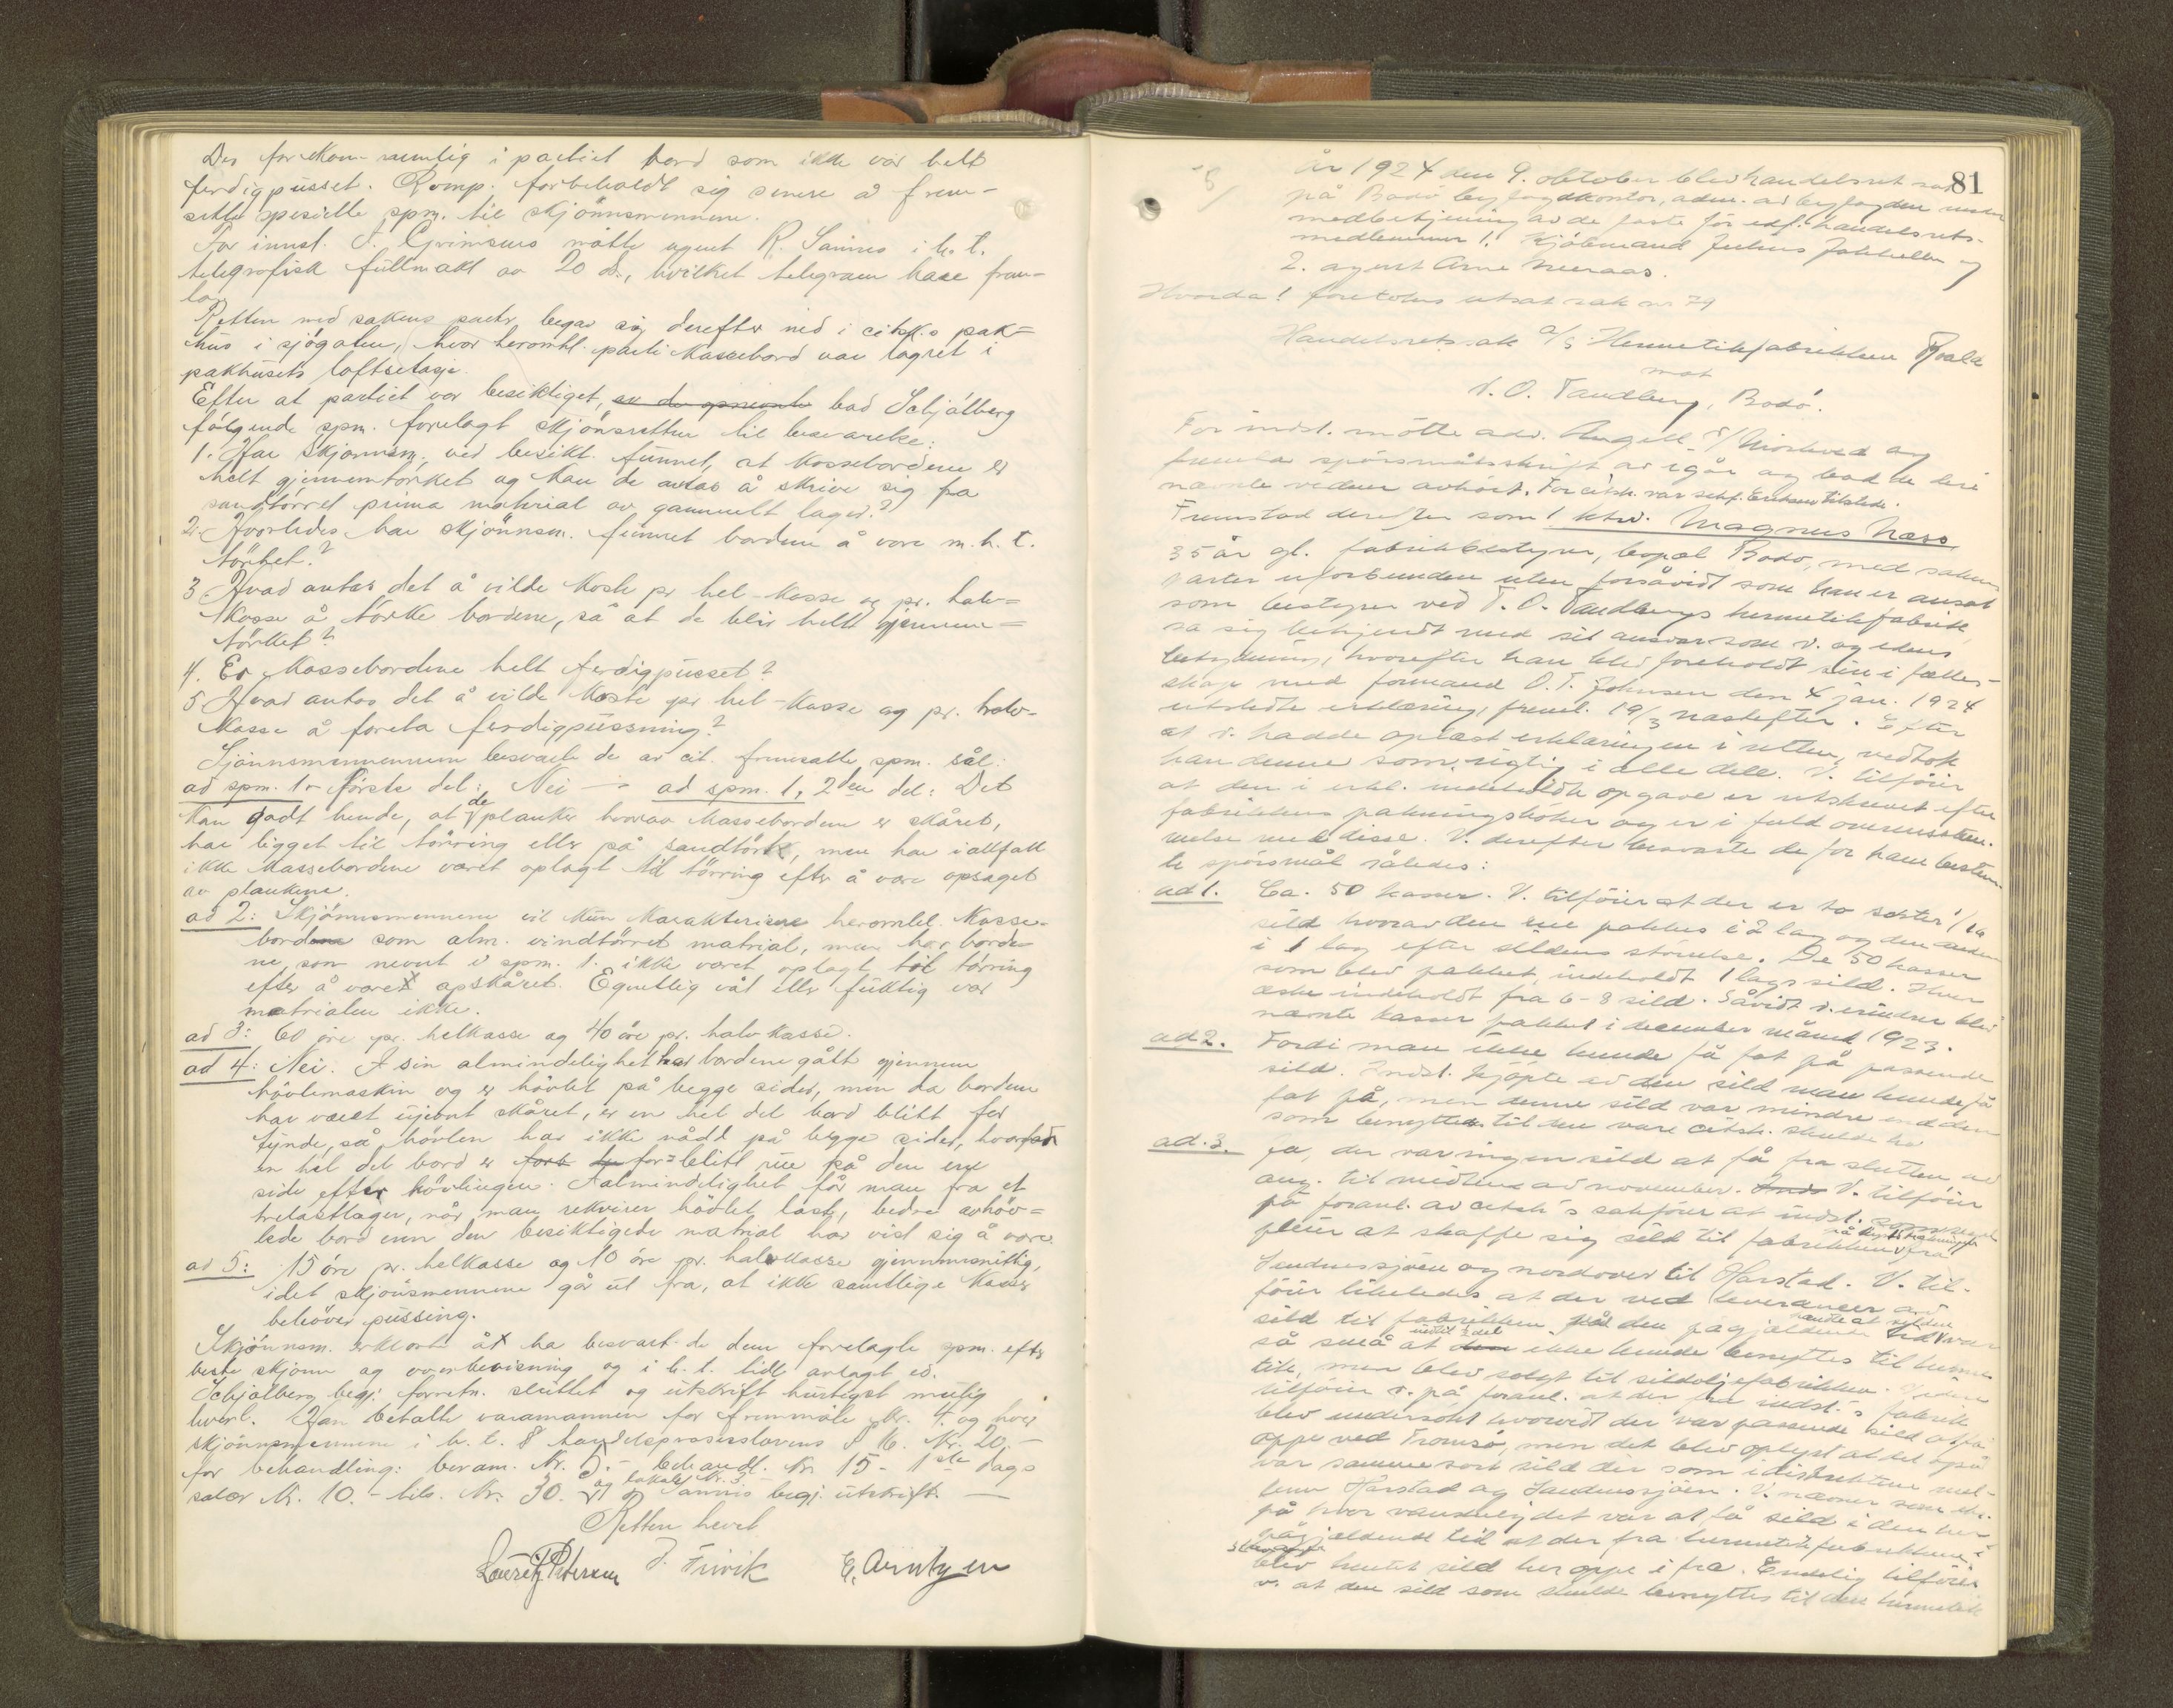 Der forekom nemlig i partiet bord som ikke var helt
ferdigpusset. Komp. forbeholdt sig senere å frem-
sette spesielle spm. til skjønnsmennene.
For innst. S. Grimsmo møtte agent R. Sannes i h. t.
telegrafisk fullmakt av 20 ds., hvilket telegram han frem-
la.
Retten med sakens parter begav sig derefter ned i citsk.s pak=
hus i sjøgaten, hvor heromhl. parti kassebord var lagret i
pakhusets loftsetasje.
Efter at partiet var besiktiget, bad Schjølberg
følgende spm. forelagt skjønsretten til besvarelse:
1. Har skjønnsm. ved besikt. funnet, at kassebordene er
helt gjennemtørket og kan de antas å skrive sig fra
vindtørret prima material av gammelt lager?
2. Hvorledes har skjønnsm. funnet bordene å være m. h. t.
tørhet?
3 Hvad antas det å vilde koste pr hel-kasse og pr. halv=
kasse å tørke bordene, så at de blir helt gjennem=
tørket?
4. Er kassebordene helt ferdigpusset?
5 Hvad antas det å vilde koste pr hel-kasse og pr. halv-
kasse å foreta ferdigpussning?
Sjønnsmennene besvarte de av cit. fremsatte spm. sål:
ad spm. 1. første del: Nei — ad spm. 1, 2den del: Det
kan godt hende, at de planker hvorav kassebordene er skåret,
har ligget til tørring eller på vindtørk, men har iallfall
ikke kassebordene været oplagt til tørring efter å være opsaget
av plankene.
ad 2: Skjønnsmennene vil kun karakterisere heromhl. kasse-
bord som alm. vindtørret matrial, men har borde-
ne, som nevnt i spm. 1. ikke været oplagt til tørring
efter å være opskåret. Egentlig våt eller fuktig var
matrialen ikke.
ad 3: 60 øre pr. helkasse og 40 øre pr. halvkasse.
ad 4: Nei. I sin almindelighet har bordene gått gjennem
høvlemaskin og er høvlet på begge sider, men da bordene
har været ujevnt skåret, er en hel del bord blitt for
tynde, så høvlen har ikke nådd på begge sider, hvorfor
en hel del bord er blitt rue på den ene
side efter høvlingen. I almindelighet får man fra et
trelastlager, når man rekvirer høvlet last, bedre avhøv=
lede bord enn den besiktigede matrial har vist sig å være.
ad 5: 15 øre pr. helkasse og 10 øre pr. halvkasse gjennemsnittlig,
idet skjønsmennene går ut fra, at ikke samtlige kasser
behøver pussing.
Skjønnsm. erklærte å ha besvart de dem forelagte spm. efter
beste skjønn og overbevisning og i h. t. tidl. avlagt ed.
Schjølberg begj. forretn. sluttet og utskrift hurtigst mulig
hverl. Han betalte varamannen for fremmøte kr. 4. og hver
skjønnsmennene i h. t. Kr. 20.—
for behandling: beram. kr. 5.— behandl. kr 15 - 1ste dags
salær kr. 10.— tils. kr. 30. og lokale kr. 3 Sannes begj. utskrift. —
Retten hevet
Lauritz Petersen J. Trivik E. Arntzen
81
År 1924 den 9. oktober blev handelsret sat
på Bodø byfogdkontor, adm. av byfogden under
medbetjening av de faste før edf. handelsrets-
medlemmer 1. Kjøbmand Julius Jakhelln og
2. agent Arne Meeraas.
Hvorda! foretokes utsat sak nr 74
Handelsretssak A/S Hermetikfabrikken Roald
mot
T. O. Tandberg, Bodø.
For indst. møtte adv. Angell og
fremla spørsmålsskrift av igår og bad de deri
nævnte vidner avhørt. For citsk. var sakf. Eriksen tilstede.
Fremstod derefter som 1. ktrv. Magnus Næss
35 år gl. fabrikbestyrer, bopæl Bodø, med sakens
parter uforbunden uten forsåvidt som han er ansat
som bestyrer ved T. O. Tandbergs hermetikfabrik,
sa sig bekjendt med sit ansvar som v. og edens
betydning, hvorefter han blev foreholdt sin i fælles-
skap med formand O. T. Johnsen den 4 jan. 1924
utstedte erklæring, freml. 19/3 næstefter. Efter
at v. hadde oplæst erklæringen i retten, vedtok
han denne som rigtig i alle dele. V. tilføier
at den i erkl. indeholdte opgave er utskrevet efter
fabrikkens pakningsbøker og er i fuld overensstem-
melse med disse. V. derefter besvarte de for ham bestem-
te spørsmål således:
ad 1. Ca. 50 kasser. V. tilføier at der er to sorter 1/10
sild hvorav den ene pakkes i 2 lag og den anden
i 1 lag efter sildens størrelse. De 50 kasser
som blev pakket indeholdt 1 lags sild. Hver
æske indeholdt fra 6-8 sild. Såvidt v. erindrer blev
nævnte kasser pakket i december måned 1923.
ad 2. Fordi man ikke kunde få fat på passende
sild. Indst. kjøpte av den sild man kunde få
fat på, men denne sild var mindre end den
som benyttes til den vare citsk. skulde ha
ad. 3. Ja, der var ingen sild at få fra slutten av
aug. til midten av november. V. tilføier
på foranl. av citsk's sakfører at indst.
pleier at skaffe sig sild til fabrikken fra
Sandnessjøen og nordover til Harstad. V. til-
føier likeledes at der ved leverancer av
sild til fabrikken på den pågjældende tid hændte at silden var
så små at indtil ½ del ikke kunde benyttes til herme-
tik, men blev solgt til sildoljefabrikken. Videre
tilføier v. på foranl. at der fra indst.'s fabrik
blev undersøkt hvorvidt der var passende sild at få
oppe ved Tromsø, men det blev oplyst at det også
var samme sort sild der som i distriktene mel-
lem Harstad og Sandnessjøen. V. nævner som eks.
på hvor vanskelig det var at få sild i den her
pågjældende tid at der fra hermetikfabrikkene i
blev hentet sild her oppe i fra. Endelig tilføier
v. at den sild som skulde benyttes til den hermetik